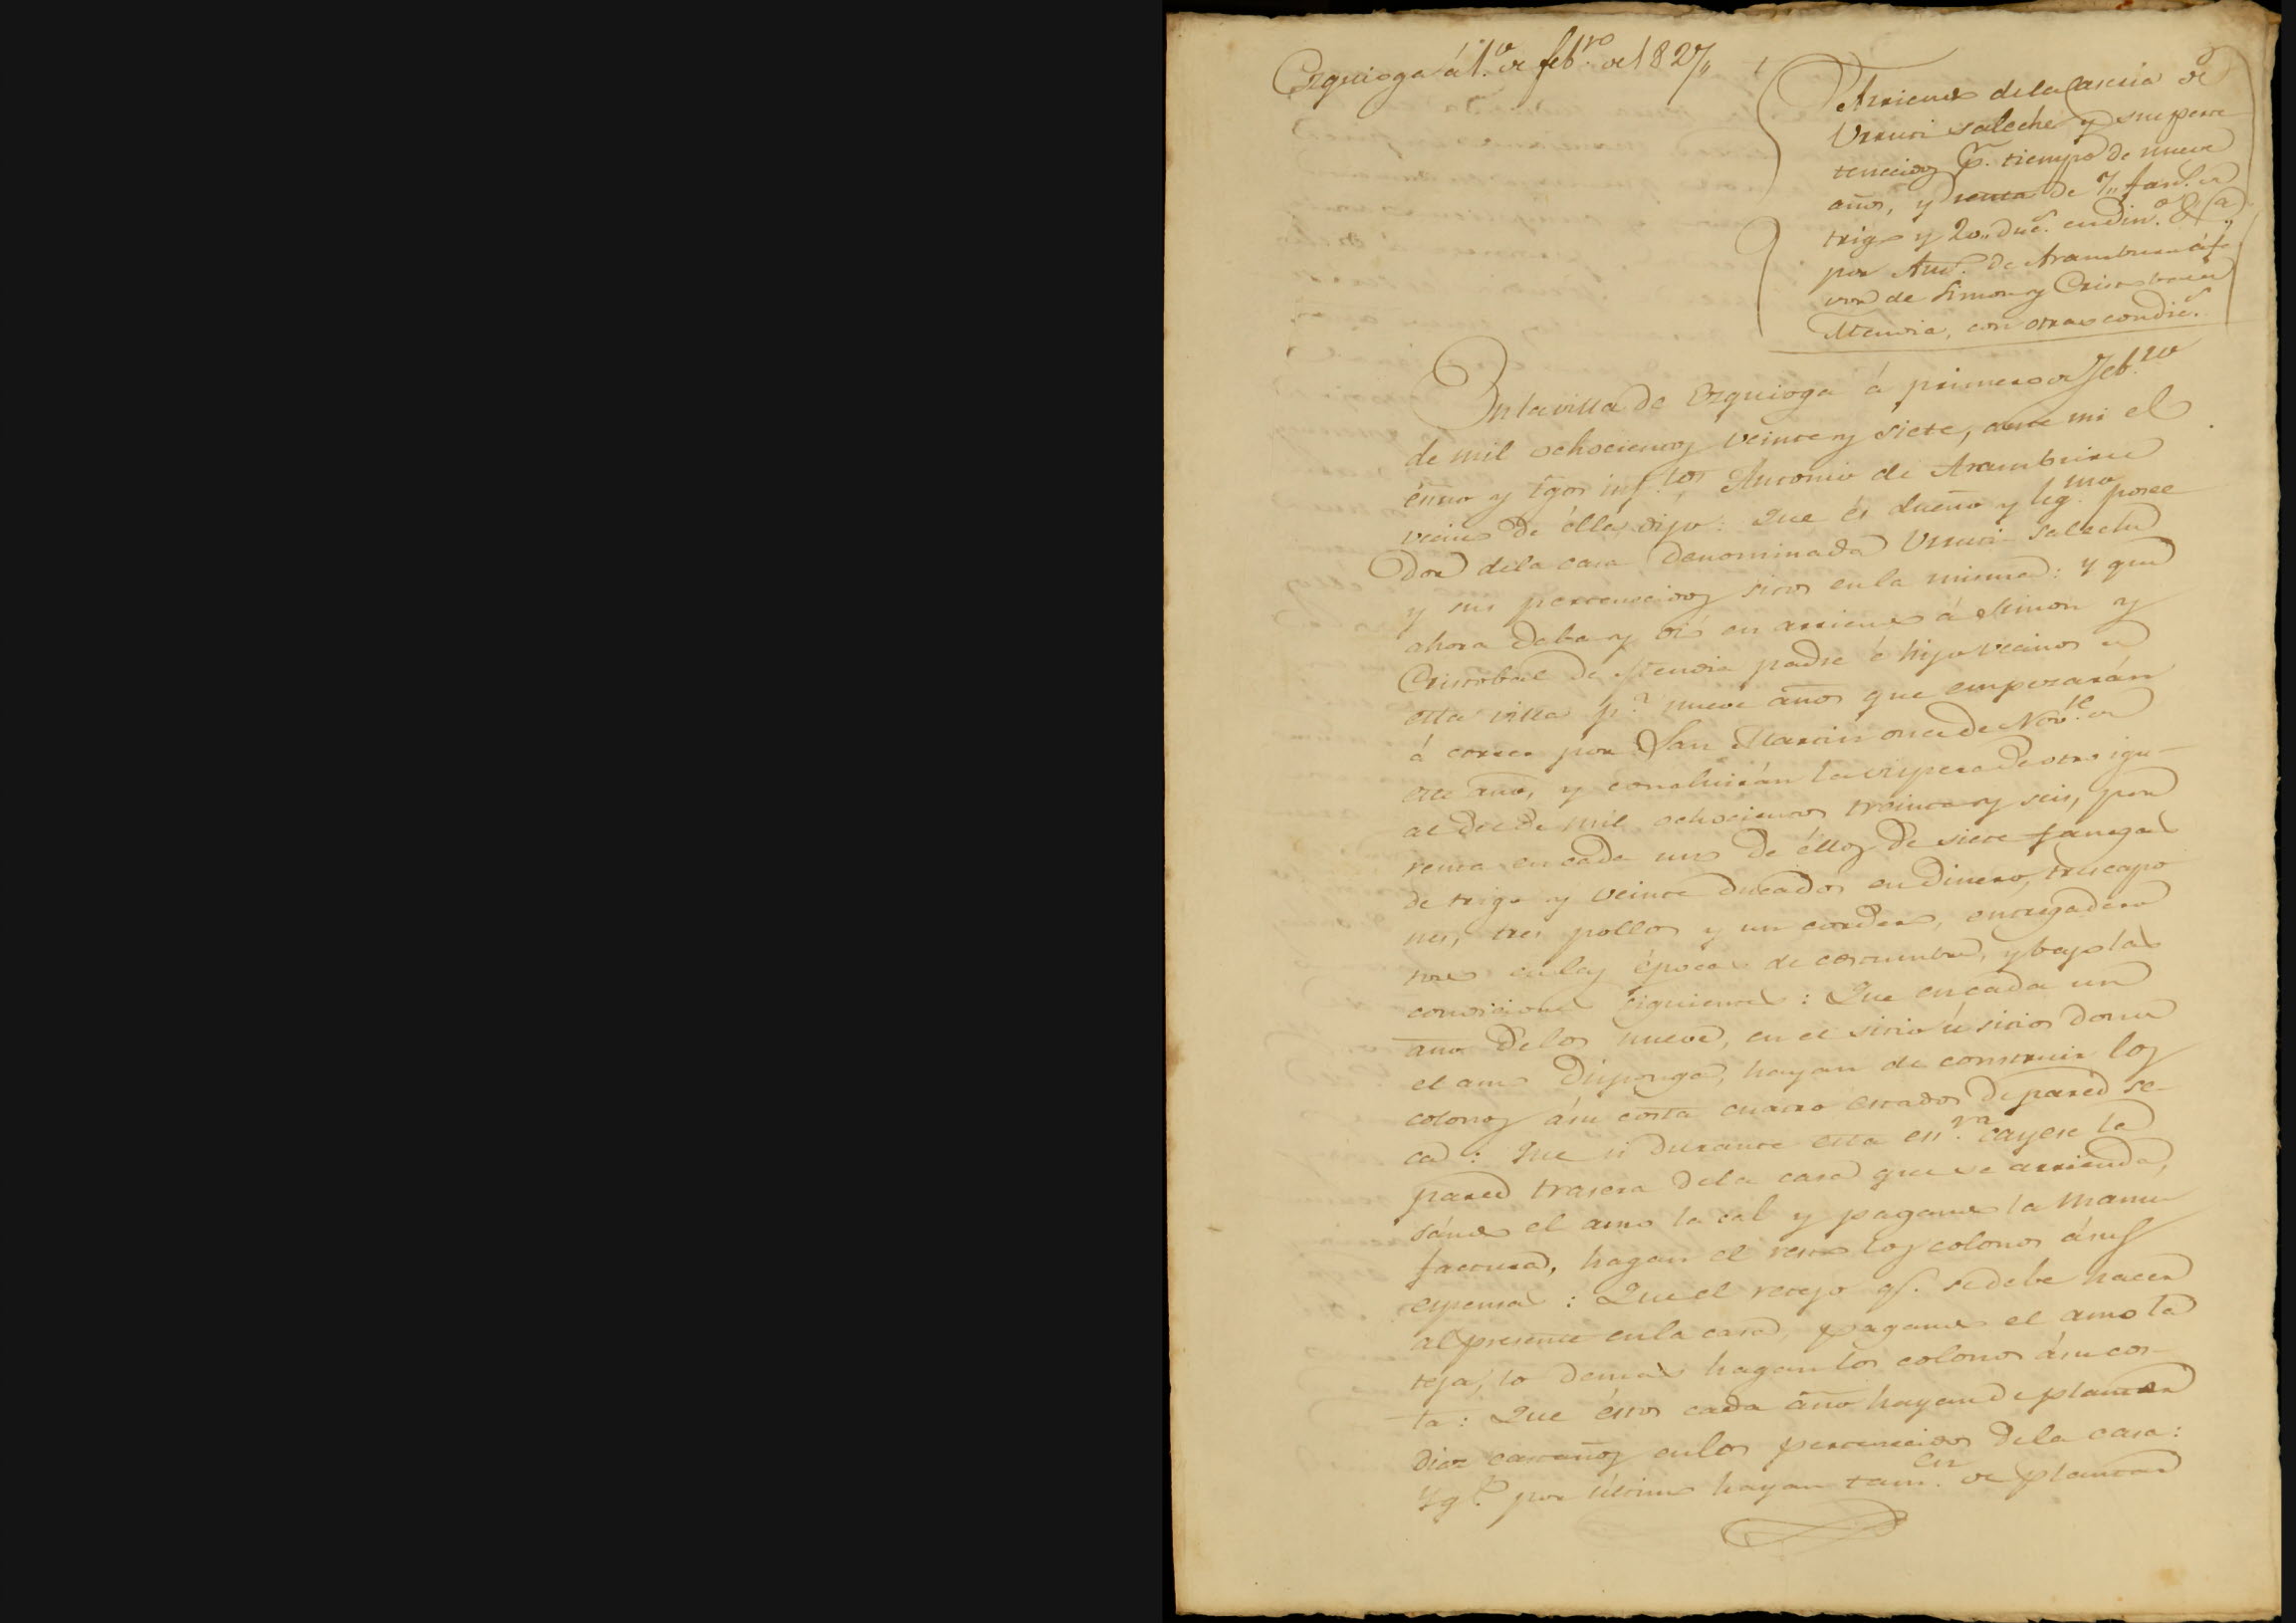 Ezquioga á 1.º de feb.ro de 1827,,
Arriendo dela Caseria de
Urruti saleche y sus perte
necidos p.r tiempo de nueve
años, y renta de 7,, fan.s de
trigo y 20,, duc.s en din.º &.a
por Ant.º de Aramburu á fa
vor de Simon y Cristobal de
Atendia, con otras condic.s
En la villa de Ezquioga á primero de Feb.ro
de mil ochocientos veinte y siete, ante mi el
éssno y tgos inf.tos, Antonio de Aramburu
vecino de élla, dijo: Que és dueño y leg.mo posee
dor dela casa denominada Urruti-saleche
y sus pertenecidos sitos en la misma: y que
ahora daba y dió en arriendo á Simon y
Cristobal de Atendia padre é hijo vecinos de
esta villa p.r nueve años que empezarán
á correr por San Martin once de Nov.e de
este año, y concluirán la vispera de otro igu-
al dia de mil ochocientos treinta y seis, por
renta en cada uno de éllos de siete fanegas
de trigo y veinte ducados en dinero, tres capo
nes, tres pollos y un cordero, entregadero
todo en las épocas de costumbre, y bajo las
condiciones siguientes: Que en cada un
año delos nueve, en el sitio ú sitios donde
el amo disponga, hayan de construir los
colonos á su costa cuatro estados de pared se-
ca: Que si durante esta ess.ra cayese la
pared trasera dela casa que se arrienda,
dando el amo la cal y pagando la manu
factura, hagan el resto los colonos á sus
espensas: Que el retejo q.e se debe hacer
al presente en la casa, pagando el amo la
teja, lo demas hagan los colonos á su cos-
ta: Que éstos cada año hayan de plantar
diez castaños en los pertenecidos dela casa:
Y q.e por último hayan tam.en de plantar